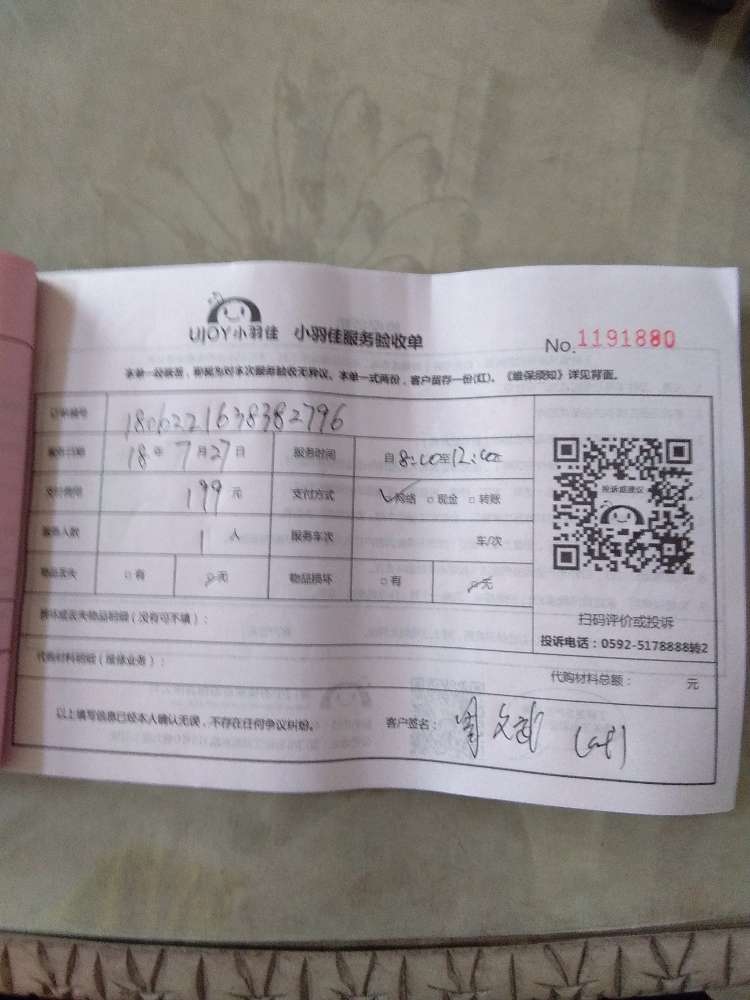 UJOY小羽佳 小羽佳服务验收单 No.1191880
本单一经装签，即视为对本次服务验收无异议。本单一式两份，客户留存一份(红)。《维保须知》详见背面。
订单编号 1806221638382796
服务日期 18年7月27日 服务时间 自8:00至12:00
支付费用 199元 支付方式 网络 □现金 □转账
服务人数 1人 服务车次 车/次
物品丢失 □有 □无 物品损坏 □有 □无
投诉或建议
扫码评价或投诉
投诉电话：0592-5178888转2
损坏或丢失物品明细（没有可不填）：
代购材料明细（维修业务）： 代购材料总额： 元
以上填写信息已经本人确认无误，不存在任何争议纠纷。 客户签名：